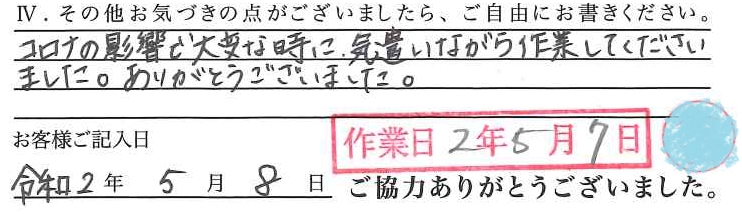 Ⅳ．その他お気づきの点がございましたら、ご自由にお書きください。
コロナの影響で大変な時に、気遣いながら作業してください
ました。ありがとうございました。
お客様ご記入日
作業日 2年5月7日
令和2年 5月 8日 ご協力ありがとうございました。